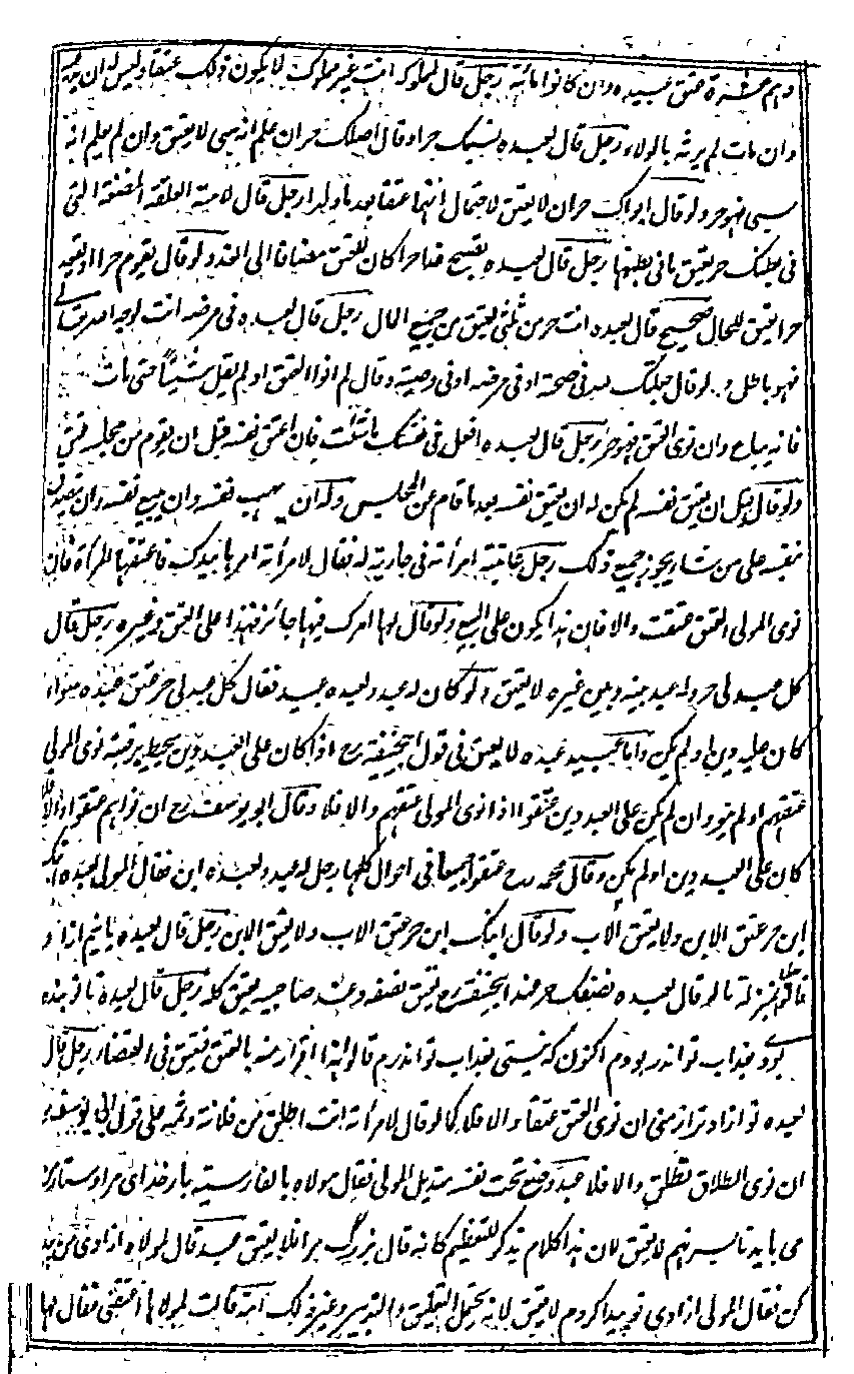 وهم عشرة عتق عبيده وان كانوا مائة رجل قال لمملوكه انت غير مملوك لا يكون ذلك عتقا وليس له ان
وان مات لم يرثه بالولاء رجل قال لعبده نسبك حر او قال اصلك حر ان علم انه سبي لا يعتق وان لم يعلم انه
سبي فهو حر ولو قال ابواك حران لا يعتق لاحتمال انهما عتقا بعد ما ولدا رجل قال لامته العلقة المضغة التي
في بطنك حر يعتق ما في بطنها رجل قال لعبده يصبح غدا حرا كان العتق مضافا الى الغد ولو قال يقوم حرا او يقعد
حرا يعتق للحال صحيح قال لعبده انت حر من ثلثي يعتق من جميع المال رجل قال لعبده في مرضه انت لوجه الله تعالى
فهو باطل ولو قال جعلتك لله في صحته او في مرضه او في وصيته وقال لم انوا العتق او لم يقل شيئا حتى مات
فانه يباع وان نوى العتق فهو حر رجل قال لعبده افعل في نفسك ما شئت فان اعتق نفسه قبل ان يقوم من مجلسه عتق
ولو قال ان يعتق نفسه لم يكن له ان يعتق نفسه بعد ما قام عن المجلس وله ان يهب نفسه وان يبيع نفسه وان يتصدق
بنفسه على من شاء يجوز جميع ذلك رجل عاتبته امرأته في جارية له فقال لامرأته امرها بيدك فاعتقتها المرأة فان
نوى المولى العتق عتقت والا فان هذا يكون على البيع ولو قال لها امرك فيها جائز فهذا على العتق وغيره رجل قال
كل عبد لي حر وله عبد بينه وبين غيره لا يعتق ولو كان له عبد ولعبده عبيد فقال كل عبد لي حر عتق عبده سواء
كان عليه دين او لم يكن واما عبيد عبده لا يعتق في قول ابيحنيفة رح اذا كان على العبد دين يحيط برقبته نوى المولى
عتقهم او لم ينو وان لم يكن على العبد دين عتقوا اذا نوى المولى عتقهم والا فلا وقال ابو يوسف رح ان نواهم عتقوا والا فلا
كان على العبد دين او لم يكن وقال محمد رح عتقوا جميعا في احوال كلها رجل له عبد ولعبده ابن فقال المولى لعبده
ابن حر عتق الابن ولا يعتق الاب ولو قال ابنك ابن حر عتق الاب ولا يعتق الابن رجل قال لعبده يا نيم ازاد
قالوا هذا بمنزلة ما لو قال لعبده نصفك حر عند ابيحنيفة رح يعتق نصفه وعند صاحبيه يعتق كله رجل قال لعبده تا تو بنده
بودي بعذاب تو اندر بودم اكنون كه نيستي بعذاب تو اندرم قالوا هذا اقرار منه بالعتق فيعتق في القضاء رجل قال
لعبده تو ازاد تر از مني ان نوى العتق عتق والا فلا كما لو قال لامرأته انت اطلق من فلانة وثمه على قول ابي يوسف
ان نوى الطلاق تطلق والا فلا عبد وضع تحت نفسه منديل المولى فقال مولاه بالفارسية بار خداى مرا دستار
مى بايد تا بسر نهم لا يعتق لان هذا كلام يذكر للتعظيم كانه قال بزرگ مرا فلا يعتق عبد قال لمولاه ازادي من پيدا
كن فقال المولى ازادى تو پيدا كردم لا يعتق لانه يحتمل التعليق والتدبير وغير ذلك امة قالت لمولاها اعتقني فقال لها